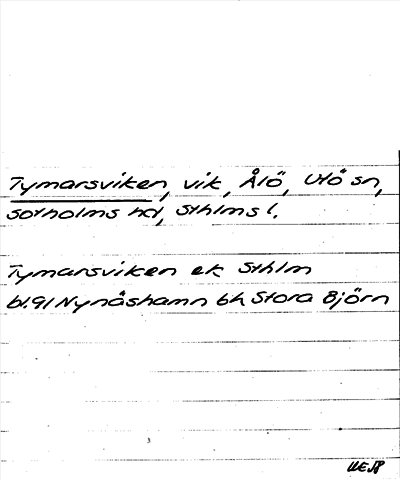 Tymarsviken, vik, Ålö, Utö sn,
Sotholms hd, Sthlms l.
Tymarsviken ek Sthlm
bl.91 Nynäshamn bh Stora Björn